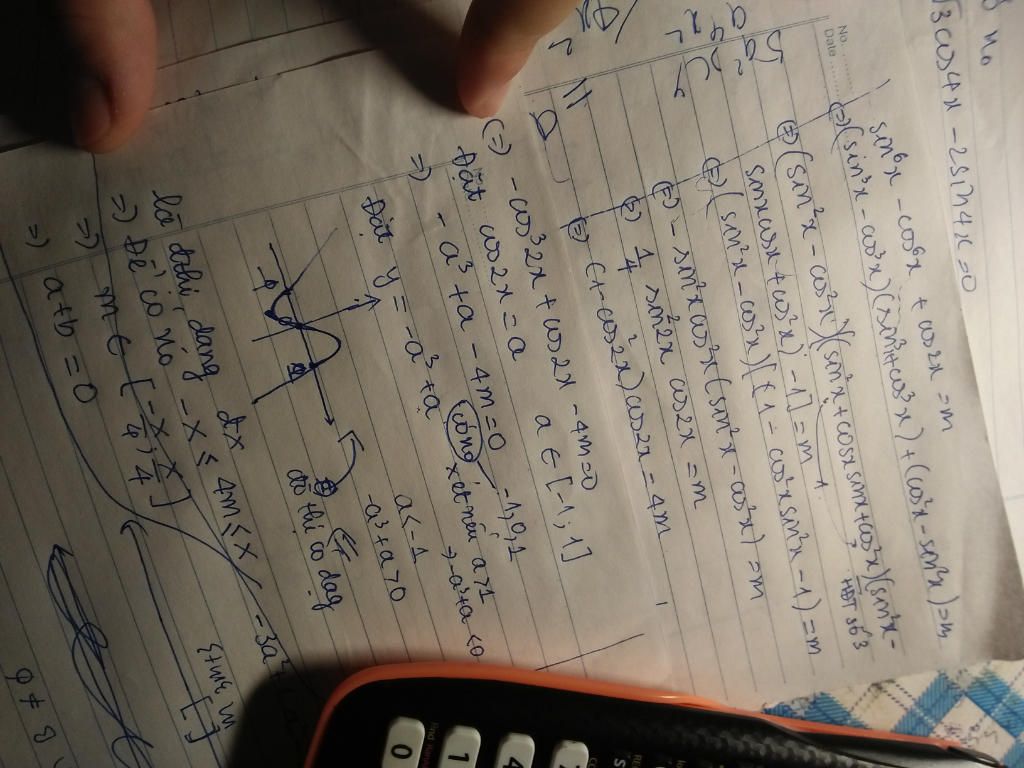 √3 cos4x - 2sin4x = 0
No.
Date
sin⁶x - cos⁶x + cos2x = m
⇔ (sin³x - cos³x)(sin³x + cos³x) + (cos²x - sin²x) = m
⇔ (sin²x - cos²x)(sin²x + cosx sinx + cos²x)(sin²x -
sinxcosx + cos²x) - 1] = m
⇔ (sin²x - cos²x)[(1 - cos²x sin²x - 1) = m
⇔ - sin²x cos²x (sin²x - cos²x) = m
⇔ 1/4 sin²2x cos2x = m
⇔ (1 - cos²2x) cos2x = 4m
⇔ - cos³2x + cos2x - 4m = 0
Đặt cos2x = a a ∈ [-1; 1]
⇒ - a³ + a - 4m = 0 -1, 0, 1
Đặt y = -a³ + a có nó xét nếu a > 1
⇒ -a³ + a < 0
a < -1
-a³ + a > 0
đồ thị có dạg
là đồ thị dạng
⇒ Để có nó -x ≤ 4m ≤ x
⇒ m ∈ [-x/4; x/4]
⇒ a + b = 0
-3a²
0
1
4